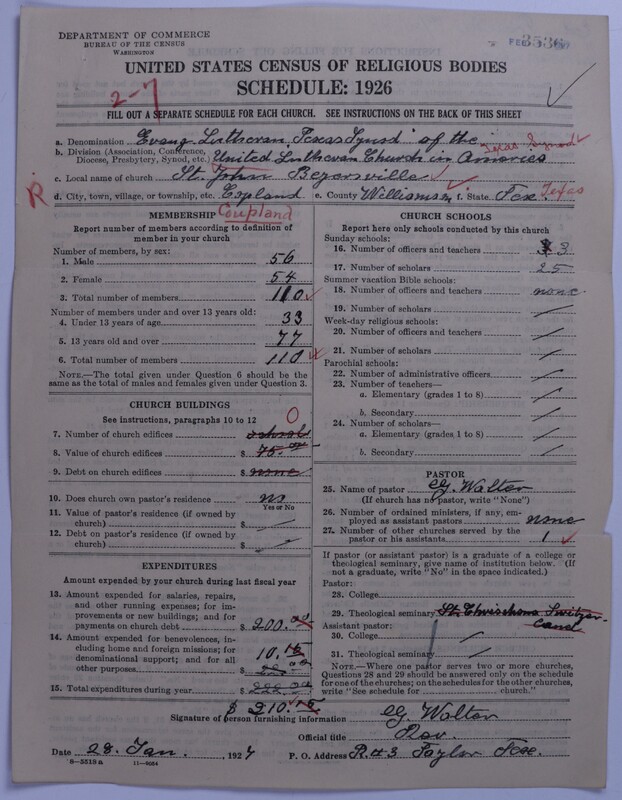 DEPARTMENT OF COMMERCE
BUREAU OF THE CENSUS
WASHINGTON
FEB 3536
UNITED STATES CENSUS OF RELIGIOUS BODIES
SCHEDULE: 1926
2-7
FILL OUT A SEPARATE SCHEDULE FOR EACH CHURCH. SEE INSTRUCTIONS ON THE BACK OF THIS SHEET
a. Denomination Evang. Lutheran, Texas Synod of the
Texas Synod
b. Division (Association, Conference, Diocese, Presbytery, Synod, etc.) United Lutheran Church in America
c. Local name of church St. John Beyersville
R
d. City, town, village, or township, etc. Copland e. County Williamson f. State Tex. Texas
Coupland
MEMBERSHIP
Report number of members according to definition of member in your church
Number of members, by sex:
1. Male 56
2. Female 54
3. Total number of members 110
Number of members under and over 13 years old:
4. Under 13 years of age 33
5. 13 years old and over 77
6. Total number of members 110
NOTE.—The total given under Question 6 should be the same as the total of males and females given under Question 3.
CHURCH BUILDINGS
See instructions, paragraphs 10 to 12
0
7. Number of church edifices school
8. Value of church edifices $ 75.00
9. Debt on church edifices $ none
10. Does church own pastor's residence no
Yes or No
11. Value of pastor's residence (if owned by church) $ /
12. Debt on pastor's residence (if owned by church) $ /
EXPENDITURES
Amount expended by your church during last fiscal year
13. Amount expended for salaries, repairs, and other running expenses; for improvements or new buildings; and for payments on church debt $ 200.00
14. Amount expended for benevolences, including home and foreign missions; for denominational support; and for all other purposes 10.15
$
15. Total expenditures during year $
$ 210.15
CHURCH SCHOOLS
Report here only schools conducted by this church
Sunday schools:
16. Number of officers and teachers 3
17. Number of scholars 25
Summer vacation Bible schools:
18. Number of officers and teachers none
19. Number of scholars /
Week-day religious schools:
20. Number of officers and teachers /
21. Number of scholars /
Parochial schools:
22. Number of administrative officers /
23. Number of teachers—
a. Elementary (grades 1 to 8) /
b. Secondary /
24. Number of scholars—
a. Elementary (grades 1 to 8) /
b. Secondary /
PASTOR
25. Name of pastor G. Walter
(If church has no pastor, write "None")
26. Number of ordained ministers, if any, employed as assistant pastors none
27. Number of other churches served by the pastor or his assistants 1
If pastor (or assistant pastor) is a graduate of a college or theological seminary, give name of institution below. (If not a graduate, write "No" in the space indicated.)
Pastor:
28. College
29. Theological seminary St. Chrischona Switzerland
Assistant pastor:
30. College /
31. Theological seminary /
NOTE.—Where one pastor serves two or more churches, Questions 28 and 29 should be answered only on the schedule for one of the churches; on the schedules for the other churches, write "See schedule for church."
Signature of person furnishing information G. Walter
Official title Rev.
Date 28. Jan., 1927 P. O. Address R#3 Taylor Tex.
8-5519 a 11-9084